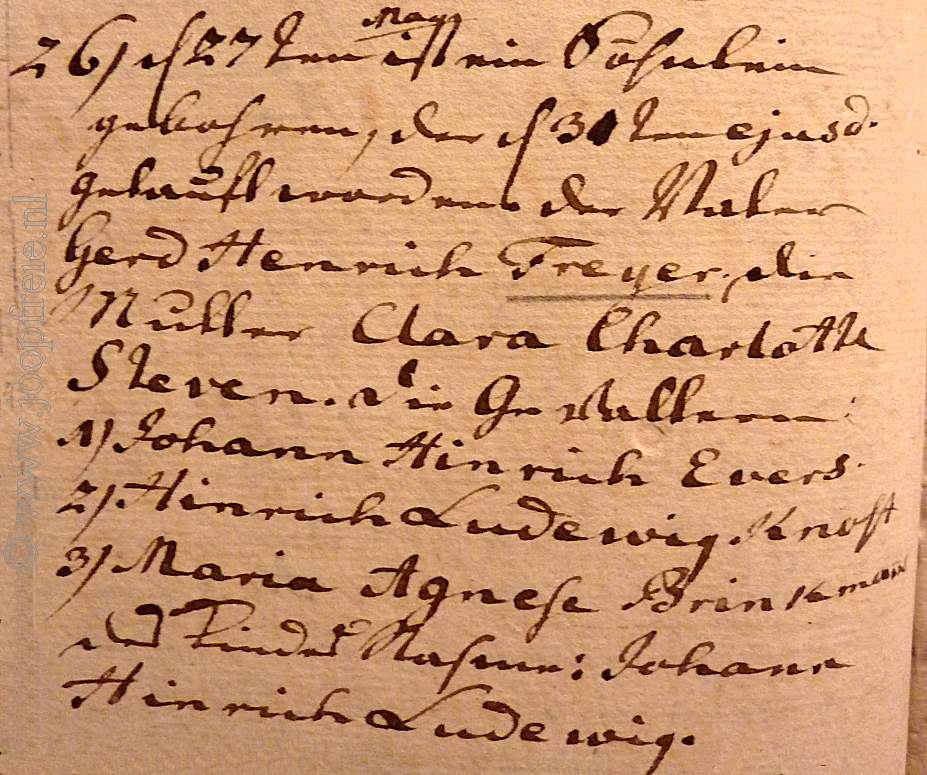 May
26) d 27ten ist ein Söhnlein
gebohren, der d 31ten ejusd.
getauft worden. der Vater
Gerd Henrich Freyer, die
Mutter Clara Charlotte
Steven. die Gevattern:
1) Johann Hinrich Evers.
2) Hinrich Ludewig Knost
3) Maria Agnese Brinkman
des Kindes Nahme: Johann
Hinrich Ludewig.
© www.joopfeie.nl